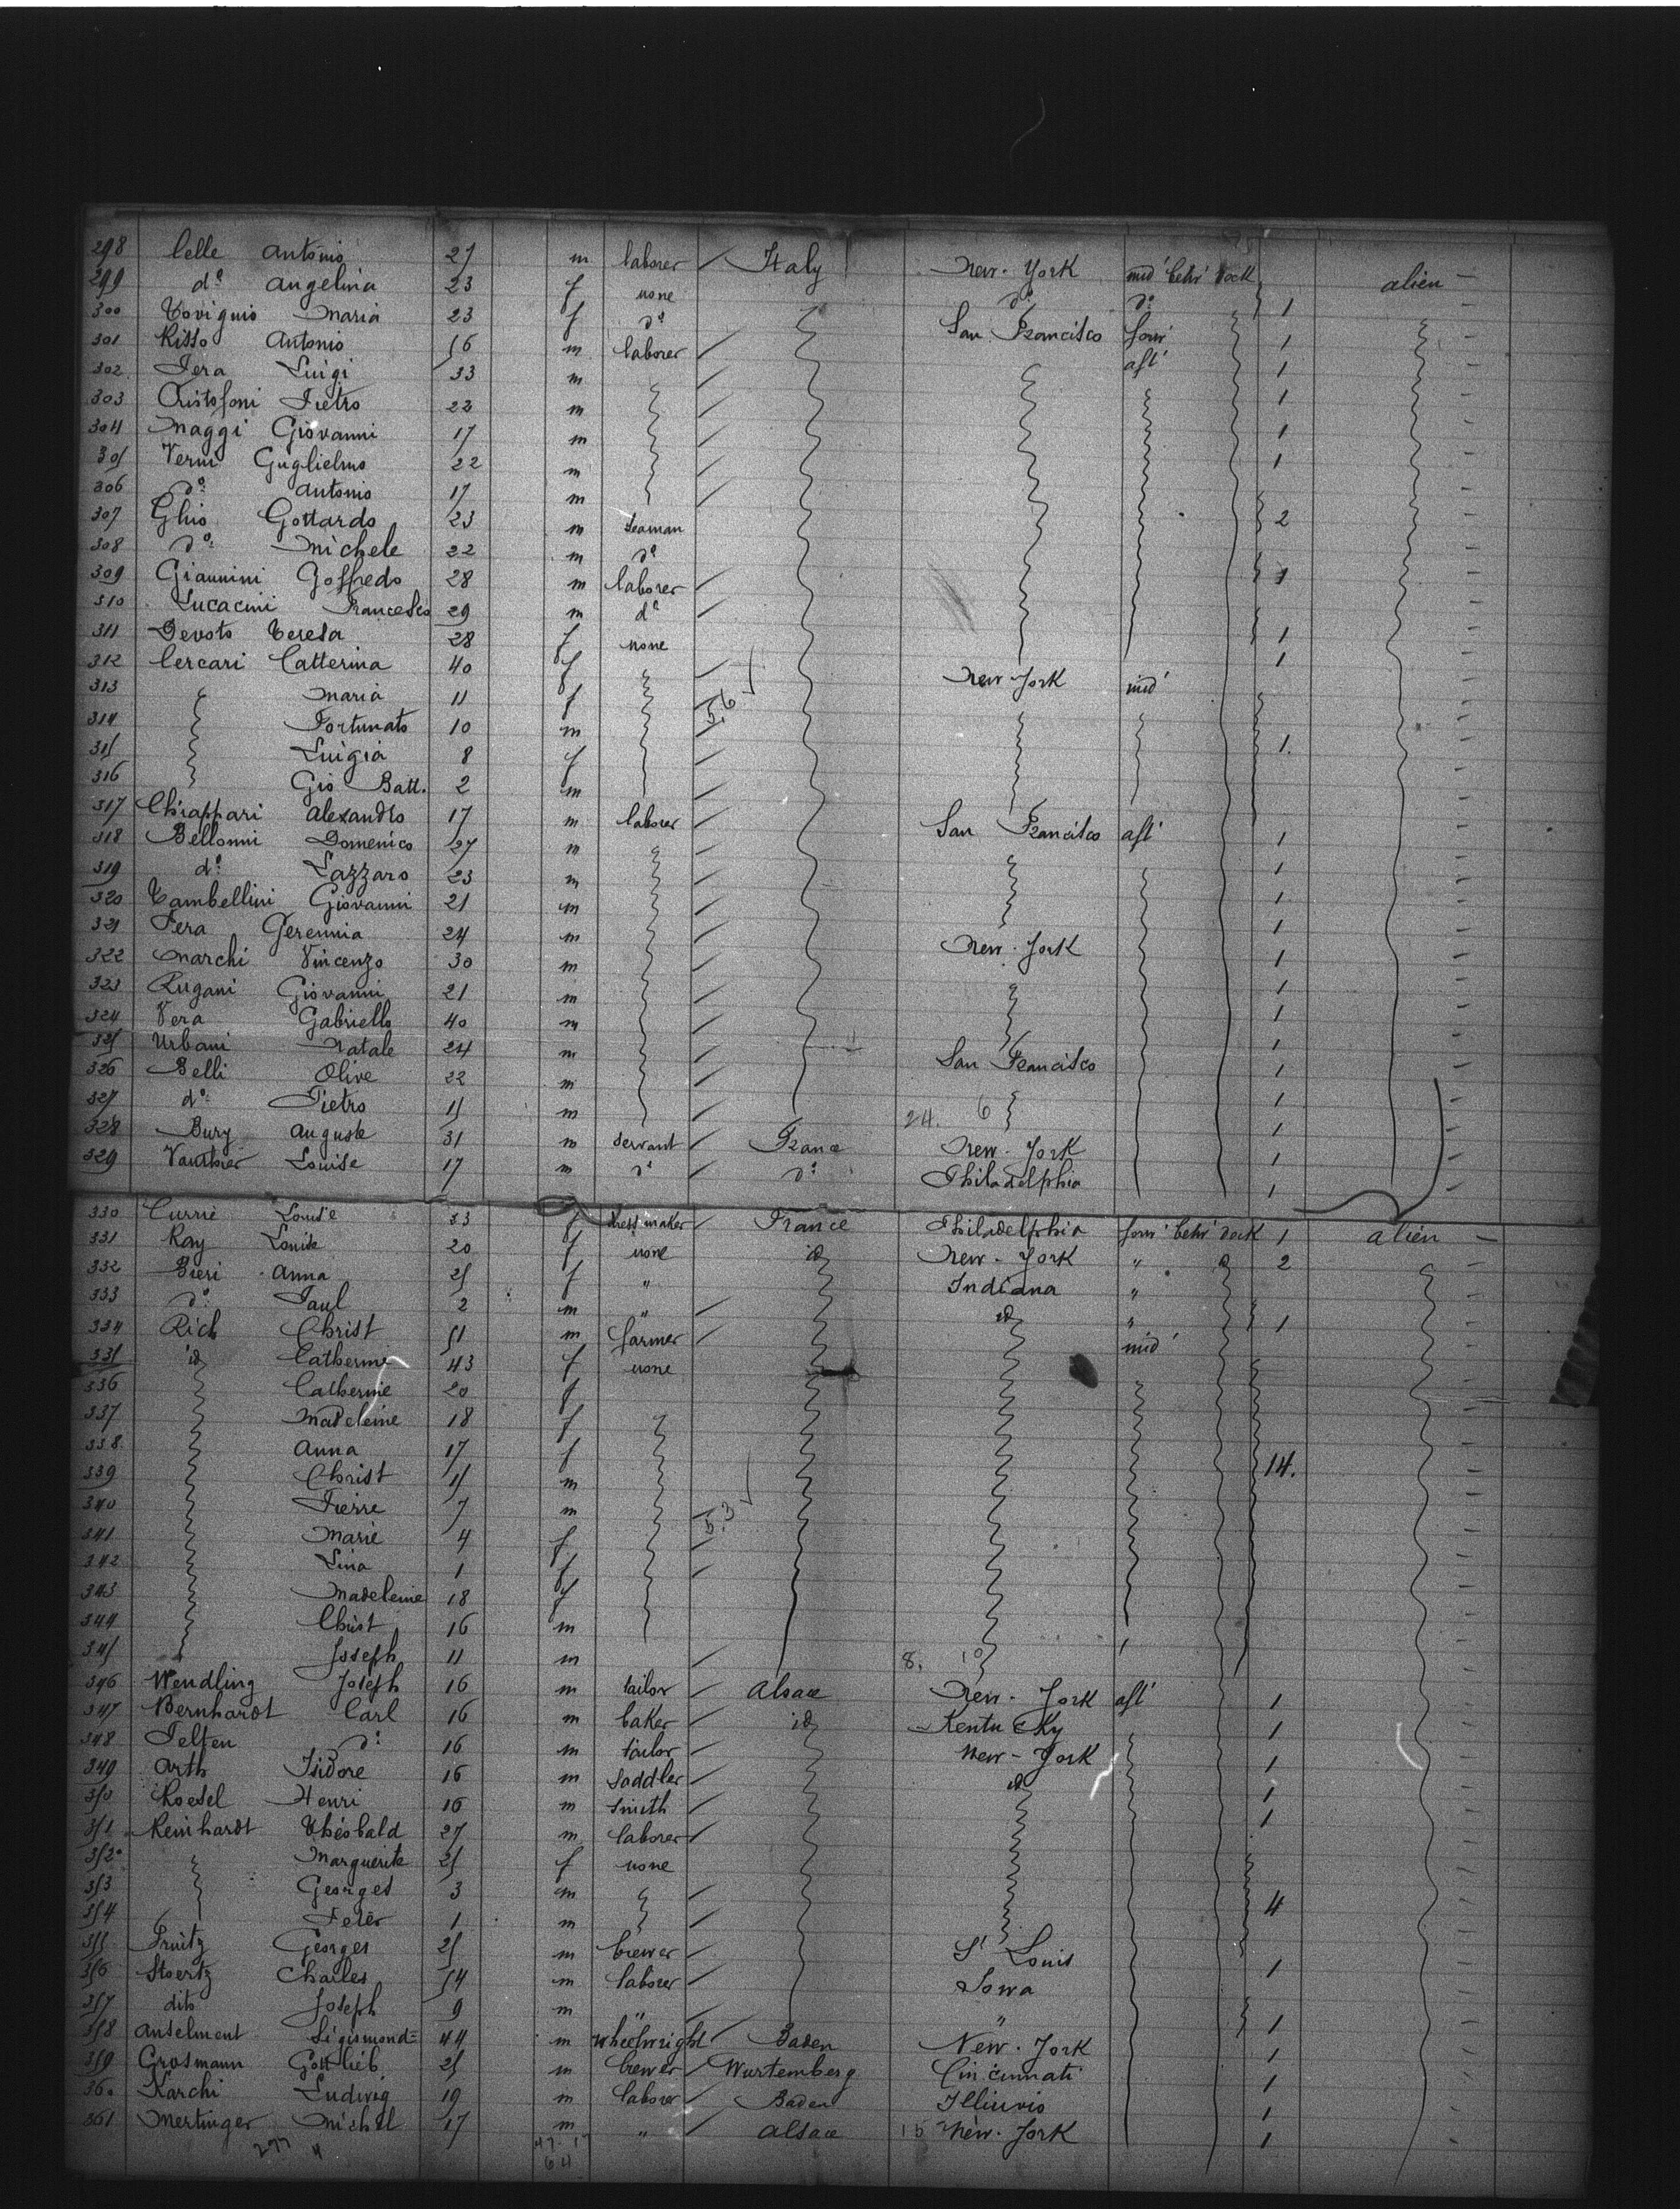 298 Celle Antonio 27 m laborer Italy New-York mid' betw' deck alien
299 d° Angelina 23 f none d° d° 1
300 Toviguio Maria 23 f d° San Francisco forw' 1
301 Risso Antonio 16 m laborer aft' 1
302 Pera Luigi 33 m 1
303 Cristofoni Pietro 22 m 1
304 Maggi Giovanni 17 m 1
305 Verni Guglielmo 22 m
306 d° Antonio 17 m 2
307 Ghio Gottardo 23 m seaman
308 d° Michele 22 m d° 1
309 Giannini Goffredo 28 m laborer
310 Lucacini Francesco 29 m d° 1
311 Devoto Teresa 28 f none 1
312 Cercari Catterina 40 f New-York mid'
313 Maria 11 f 5,6
314 Fortunato 10 m
315 Luigia 8 f 1.
316 Gio Batt. 2 m
317 Chiappari Alexandro 17 m laborer San Francisco aft' 1
318 Bellonni Domenico 27 m 1
319 d° Lazzaro 23 m 1
320 Tambellini Giovanni 21 m 1
321 Pera Geremia 24 m New-York 1
322 Marchi Vincenzo 30 m 1
323 Rugani Giovanni 21 m 1
324 Vera Gabriello 40 m 1
325 Urbani Natale 24 m San Francisco 1
326 Belli Olive 22 m 1
327 d° Pietro 15 m 24. 6 1
328 Bury Auguste 31 m servant France New-York 1
329 Vauthier Louise 17 m d° d° Philadelphia 1
330 Currie Louise 33 f dress maker France Philadelphia forw' betw' deck 1 alien
331 Ray Louise 20 f none id New-York " 2
332 Bieri Anna 25 f " Indiana "
333 d° Paul 2 m " id " 1
334 Rich Christ 51 m farmer mid'
335 id Catherine 43 f none
336 Catherine 20 f
337 Madeleine 18 f
338 Anna 17 f 14.
339 Christ 15 m
340 Pierre 7 m 5.3
341 Marie 4 f
342 Lina 1 f
343 Madeleine 18 f
344 Christ 16 m
345 Joseph 11 m 8. 10
346 Wendling Joseph 16 m tailor Alsace New-York aft' 1
347 Bernhardt Carl 16 m baker id Kentucky 1
348 Pelten d° 16 m tailor New-York 1
349 Arth Isidore 16 m saddler id 1
350 Loesel Henri 16 m smith 1
351 Reinhardt Théobald 27 m laborer
352 Marguerite 25 f none
353 Georges 3 m 4
354 Peter 1 m
355 Pruitz Georges 25 m brewer St Louis 1
356 Stoertz Charles 54 m laborer Iowa
357 dito Joseph 9 m " " 1
358 Anselment Sigismond 44 m wheelwright Baden New-York 1
359 Grosmann Gottlieb 25 m brewer Wurtemberg Cincinnati 1
360 Karchi Ludwig 19 m laborer Baden Illinois 1
361 Mertinger Michel 17 m " Alsace 15 New-York 1
277 4 47. 17
64